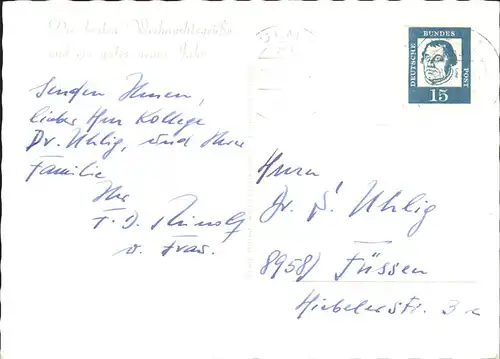 Die besten Weihnachtsgrüße
und ein gutes neues Jahr
senden Ihnen,
lieber Herr Kollege
Dr. Uhlig, und Ihrer
Familie
Ihr
u. Frau.
DEUTSCHE BUNDES POST
15
Herrn
Dr. Uhlig
8958) Füssen
Hiebelerstr. 3